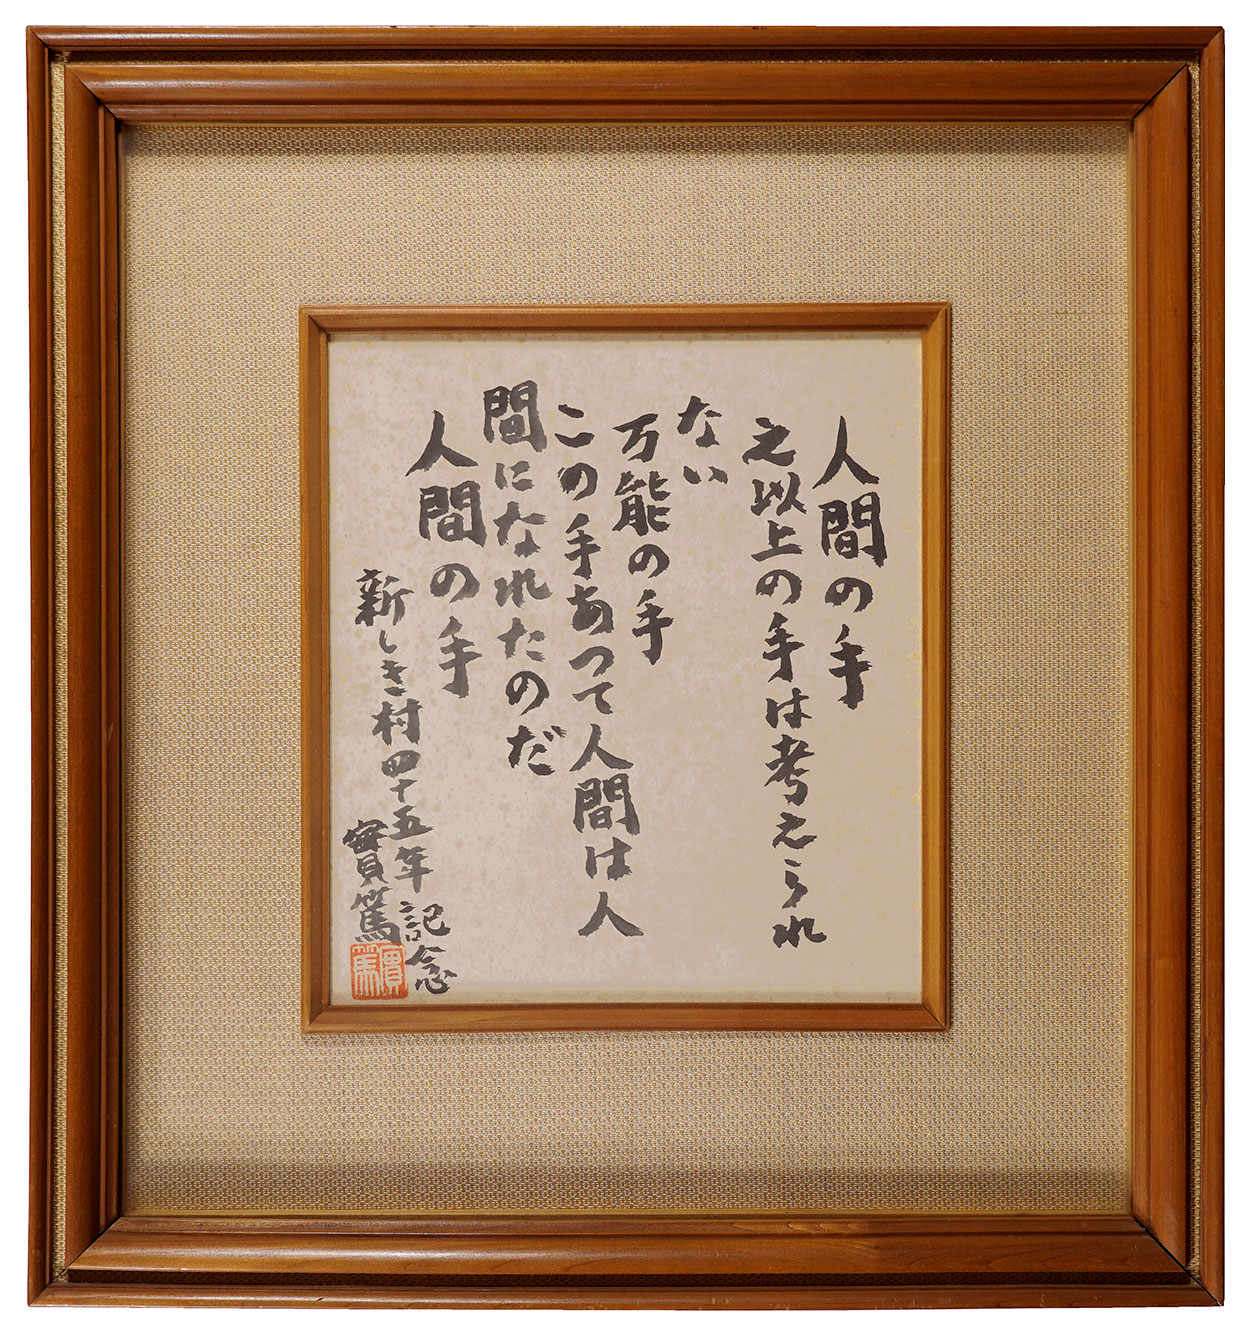 人間の手
之以上の手は考えられ
ない
万能の手
この手あつて人間は人
間になれたのだ
人間の手
新しき村四十五年記念
實篤
實篤